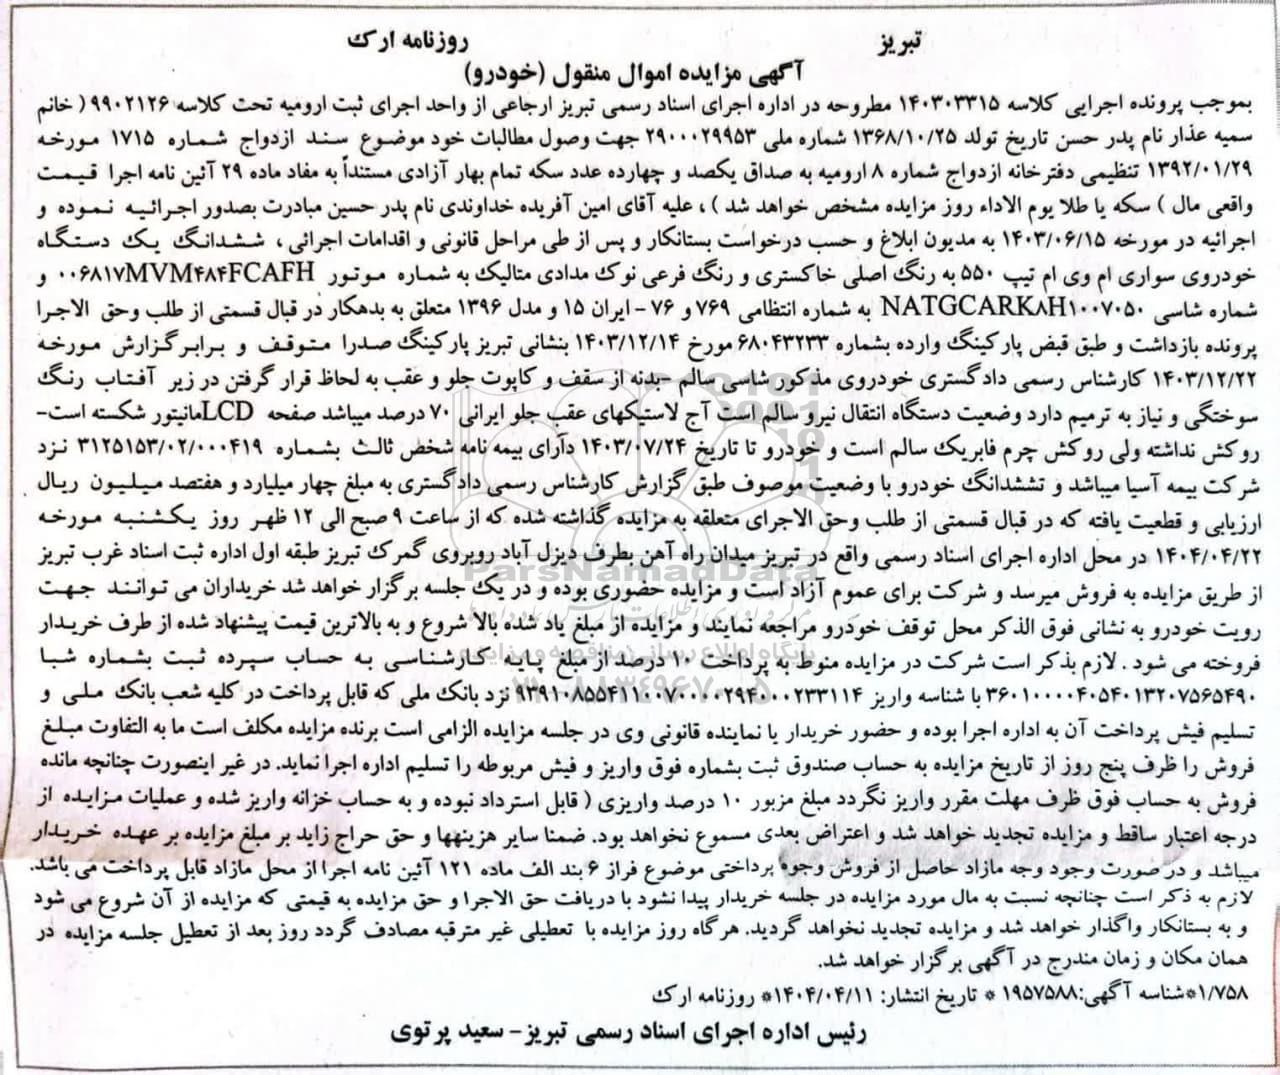 تبریز
روزنامه ارک
آگهی مزایده اموال منقول (خودرو)
بموجب پرونده اجرایی کلاسه ۱۴۰۳۰۳۳۱۵ مطروحه در اداره اجرای اسناد رسمی تبریز ارجاعی از واحد اجرای ثبت ارومیه تحت کلاسه ۹۹۰۲۱۲۶ ( خانم
سمیه عذار نام پدر حسن تاریخ تولد ۱۳۶۸/۱۰/۲۵ شماره ملی ۲۹۰۰۰۲۹۹۵۳ جهت وصول مطالبات خود موضوع سند ازدواج شماره ۱۷۱۵ مورخه
۱۳۹۲/۰۱/۲۹ تنظیمی دفترخانه ازدواج شماره ۸ ارومیه به صداق یکصد و چهارده عدد سکه تمام بهار آزادی مستنداً به مفاد ماده ۲۹ آئین نامه اجرا قیمت
واقعی مال ) سکه یا طلا یوم الاداء روز مزایده مشخص خواهد شد ) ، علیه آقای امین آفریده خداوندی نام پدر حسین مبادرت بصدور اجرائیه نموده و
اجرائیه در مورخه ۱۴۰۳/۰۶/۱۵ به مدیون ابلاغ و حسب درخواست بستانکار و پس از طی مراحل قانونی و اقدامات اجرائی ، ششدانگ یک دستگاه
خودروی سواری ام وی ام تیپ ۵۵۰ به رنگ اصلی خاکستری و رنگ فرعی نوک مدادی متالیک به شماره موتور ۰۰۶۸۱۷MVM۴۸۴FCAFH و
شماره شاسی NATGCARK۸H۱۰۰۷۰۵۰ به شماره انتظامی ۷۶۹ و ۷۶ - ایران ۱۵ و مدل ۱۳۹۶ متعلق به بدهکار در قبال قسمتی از طلب وحق الاجرا
پرونده بازداشت و طبق قبض پارکینگ وارده بشماره ۶۸۰۴۳۲۳۳ مورخ ۱۴۰۳/۱۲/۱۴ بنشانی تبریز پارکینگ صدرا متوقف و برابرگزارش مورخه
۱۴۰۳/۱۲/۲۲ کارشناس رسمی دادگستری خودروی مذکور شاسی سالم -بدنه از سقف و کاپوت جلو و عقب به لحاظ قرار گرفتن در زیر آفتاب رنگ
سوختگی و نیاز به ترمیم دارد وضعیت دستگاه انتقال نیرو سالم است آج لاستیکهای عقب جلو ایرانی ۷۰ درصد میباشد صفحه LCDمانیتور شکسته است-
روکش نداشته ولی روکش چرم فابریک سالم است و خودرو تا تاریخ ۱۴۰۳/۰۷/۲۴ دارای بیمه نامه شخص ثالث بشماره ۳۱۲۵۱۵۳/۰۲/۰۰۰۴۱۹ نزد
شرکت بیمه آسیا میباشد و تششدانگ خودرو با وضعیت موصوف طبق گزارش کارشناس رسمی دادگستری به مبلغ چهار میلیارد و هفتصد میلیون ریال
ارزیابی و قطعیت یافته که در قبال قسمتی از طلب وحق الاجرای متعلقه به مزایده گذاشته شده که از ساعت ۹ صبح الی ۱۲ ظهر روز یکشنبه مورخه
۱۴۰۴/۰۴/۲۲ در محل اداره اجرای اسناد رسمی واقع در تبریز میدان راه آهن بطرف دیزل آباد روبروی گمرک تبریز طبقه اول اداره ثبت اسناد غرب تبریز
از طریق مزایده به فروش میرسد و شرکت برای عموم آزاد است و مزایده حضوری بوده و در یک جلسه برگزار خواهد شد خریداران می توانند جهت
رویت خودرو به نشانی فوق الذکر محل توقف خودرو مراجعه نمایند و مزایده از مبلغ یاد شده بالا شروع و به بالاترین قیمت پیشنهاد شده از طرف خریدار
فروخته می شود . لازم بذکر است شرکت در مزایده منوط به پرداخت ۱۰ درصد از مبلغ پایه کارشناسی به حساب سپرده ثبت بشماره شبا
۳۶۰۱۰۰۰۰۴۰۵۴۰۱۳۲۰۷۵۶۵۴۹۰ با شناسه واریز نزد بانک ملی که قابل پرداخت در کلیه شعب بانک ملی و
تسلیم فیش پرداخت آن به اداره اجرا بوده و حضور خریدار یا نماینده قانونی وی در جلسه مزایده الزامی است برنده مزایده مکلف است ما به التفاوت مبلغ
فروش را ظرف پنج روز از تاریخ مزایده به حساب صندوق ثبت بشماره فوق واریز و فیش مربوطه را تسلیم اداره اجرا نماید. در غیر اینصورت چنانچه مانده
فروش به حساب فوق ظرف مهلت مقرر واریز نگردد مبلغ مزبور ۱۰ درصد واریزی ( قابل استرداد نبوده و به حساب خزانه واریز شده و عملیات مزایده از
درجه اعتبار ساقط و مزایده تجدید خواهد شد و اعتراض بعدی مسموع نخواهد بود. ضمنا سایر هزینهها و حق حراج زاید بر مبلغ مزایده بر عهده خریدار
میباشد و در صورت وجود وجه مازاد حاصل از فروش وجوه پرداختی موضوع فراز ۶ بند الف ماده ۱۲۱ آئین نامه اجرا از محل مازاد قابل پرداخت می باشد.
لازم به ذکر است چنانچه نسبت به مال مورد مزایده در جلسه خریدار پیدا نشود با دریافت حق الاجرا و حق مزایده به قیمتی که مزایده از آن شروع می شود
و به بستانکار واگذار خواهد شد و مزایده تجدید نخواهد گردید. هرگاه روز مزایده با تعطیلی غیر مترقبه مصادف گردد روز بعد از تعطیل جلسه مزایده در
همان مکان و زمان مندرج در آگهی برگزار خواهد شد.
۱/۷۵۸*شناسه آگهی:۱۹۵۷۵۸۸ * تاریخ انتشار: ۱۴۰۴/۰۴/۱۱* روزنامه ارک
رئیس اداره اجرای اسناد رسمی تبریز- سعید پرتوی
ParsNamadData